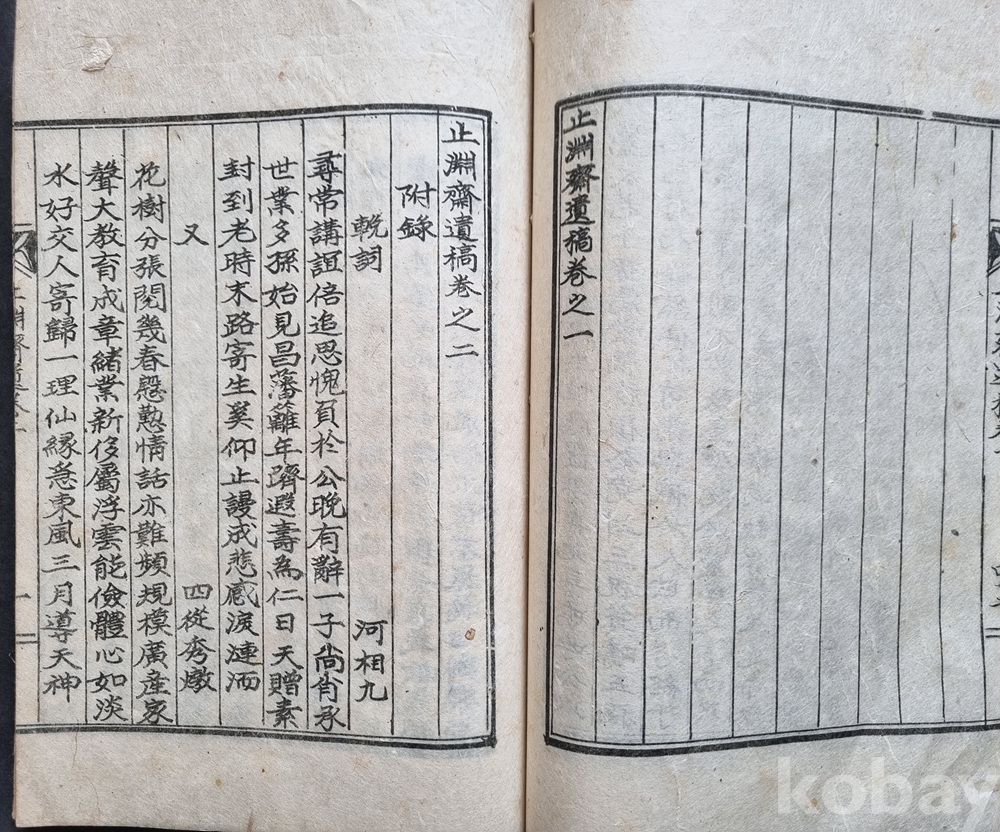 止淵齋遺稿卷之一
止淵齋遺稿卷之二
附錄
輓詞 河相九
尋常講誼倍追思愧負於公晩有辭一子尙肯承
世業多孫始見昌藩籬年躋遐壽為仁日天贈素
封到老時末路寄生奚仰止謾成悲感淚漣洏
又 四從秀燉
花樹分張閱幾春慇懃情話亦難頻規模廣産家
聲大教育成章緖業新侈屬浮雲能儉體心如淡
水好交人寄歸一理仙緣急東風三月導天神
kobay